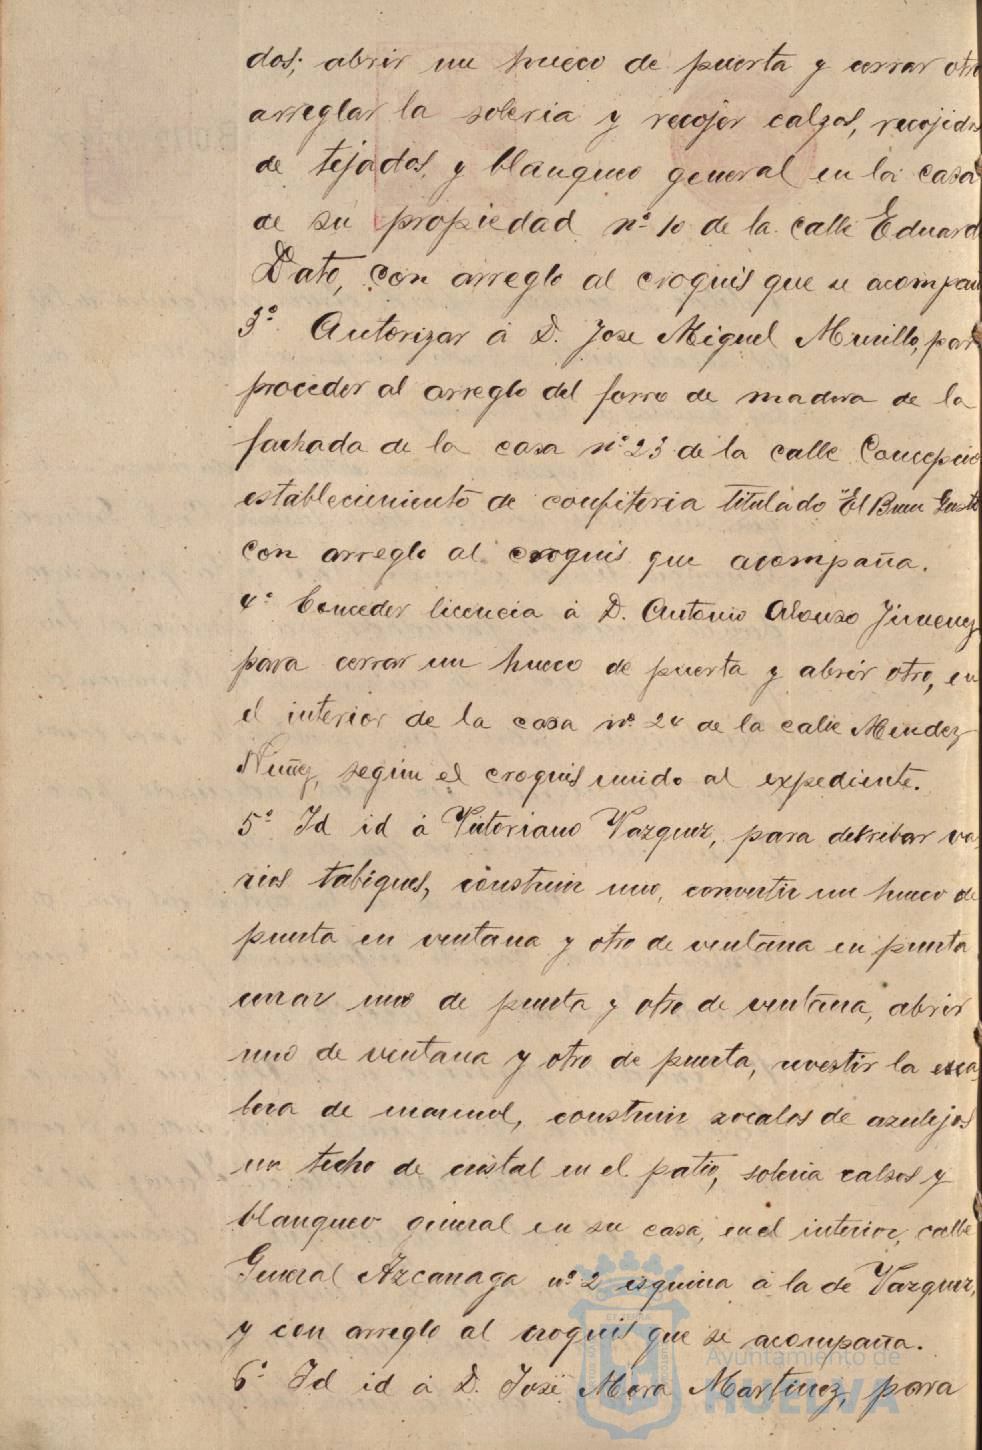 dos; abrir un hueco de puerta y cerrar otro
arreglar la soleria y recojer calzos, recojidas
de tejados, y blanqueo general en la casa
de su propiedad nº 10 de la calle Eduard
Dato, con arreglo al croquis que se acompañ
3º Autorizar á D. Jose Miguel Murillo, para
proceder al arreglo del forro de madera de la
fachada de la casa nº 23 de la calle Concepcio
establecimiento de confiteria titulado "El Buen Gusto
con arreglo al croquis que acompaña.
4º Conceder licencia á D. Antonio Alonso Jimenez
para cerrar un hueco de puerta y abrir otro, en
el interior de la casa nº 24 de la calle Mendez
Nuñez, según el croquis unido al expediente.
5º Id id á Victoriano Vazquez, para derribar va
rios tabiques, construir uno, convertir un hueco de
puerta en ventana y otro de ventana en puerta
cerrar uno de puerta y otro de ventana, abrir
uno de ventana y otro de puerta, revestir la esca
lera de marmol, construir zocalos de azulejos
un techo de cristal en el patio, soleria calsos y
blanqueo general en su casa, en el interior, calle
General Azcarraga nº 2 esquina á la de Vazquez,
y con arreglo al croquis que se acompaña.
6º Id id á D. José Mora Martinez, para
Ayuntamiento de
HUELVA